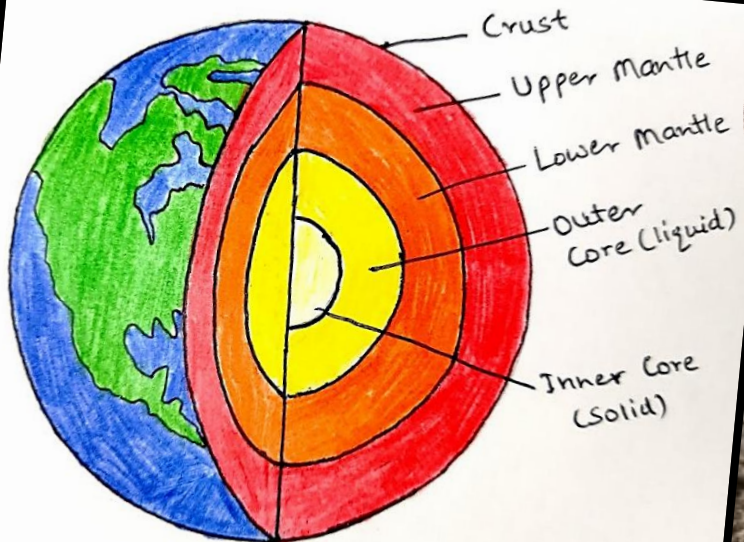 Crust
Upper Mantle
Lower Mantle
Outer
Core (liquid)
Inner Core
(Solid)